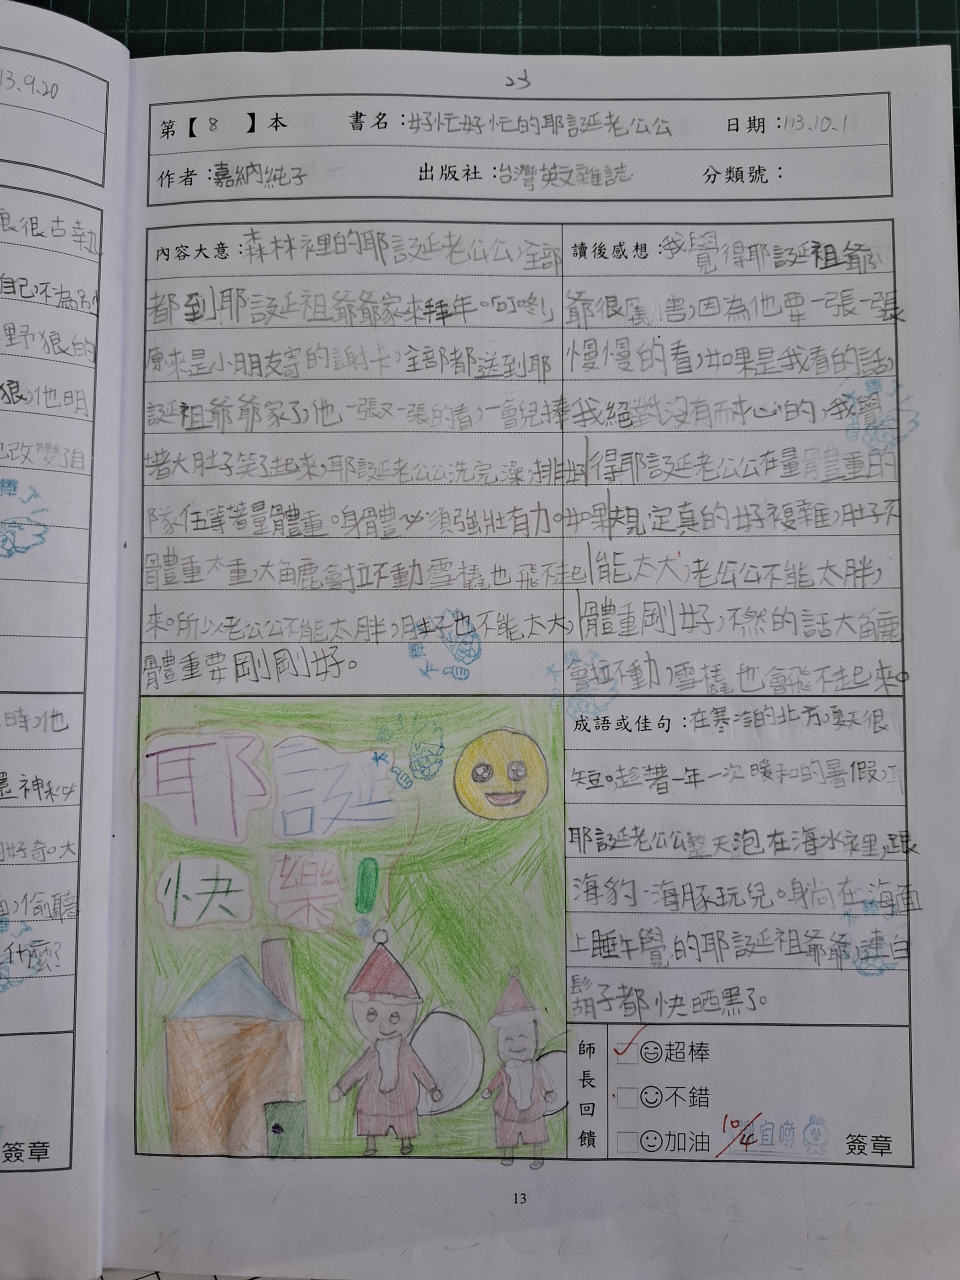 13.9.20
23
第【 8 】本 書名：好忙好忙的耶誕老公公 日期：113.10.1
作者：嘉納純子 出版社：台灣英文雜誌 分類號：
內容大意：森林裡的耶誕老公公，全部
都到耶誕祖爺爺家來拜年。叮咚，
原來是小朋友寄的謝卡，全部都送到耶
誕祖爺爺家了，他一張又一張的看，一會兒捧
著大肚子笑了起來，耶誕老公公洗完澡，排好
隊伍等著量體重。身體必須強壯有力。如果
體重太重，大角鹿會拉不動雪橇也飛不起
來。所以老公公不能太胖，肚子也不能太大，
體重要剛剛好。
讀後感想：我覺得耶誕祖爺
爺很厲害，因為他要一張一張
慢慢的看，如果是我看的話，
我絕對沒有耐心的，我覺
得耶誕老公公在量體重的
規定真的好複雜，肚子不
能太大，老公公不能太胖，
體重剛好，不然的話大角鹿
會拉不動，雪橇也會飛不起來。
耶誕
快樂！
成語或佳句：在寒冷的北方，夏天很
短。趁著一年一次暖和的暑假，
耶誕老公公整天泡在海水裡，跟
海豹、海豚玩兒。身尚在海面
上睡午覺的耶誕祖爺爺，連白
鬍子都快晒黑了。
師長回饋
超棒
不錯
加油
10/4
簽章
13
狼很古執
自己不為
野狼的
狼，他明
改變自
時，他
神秘
好奇。大
偷聽
什麼？
簽章